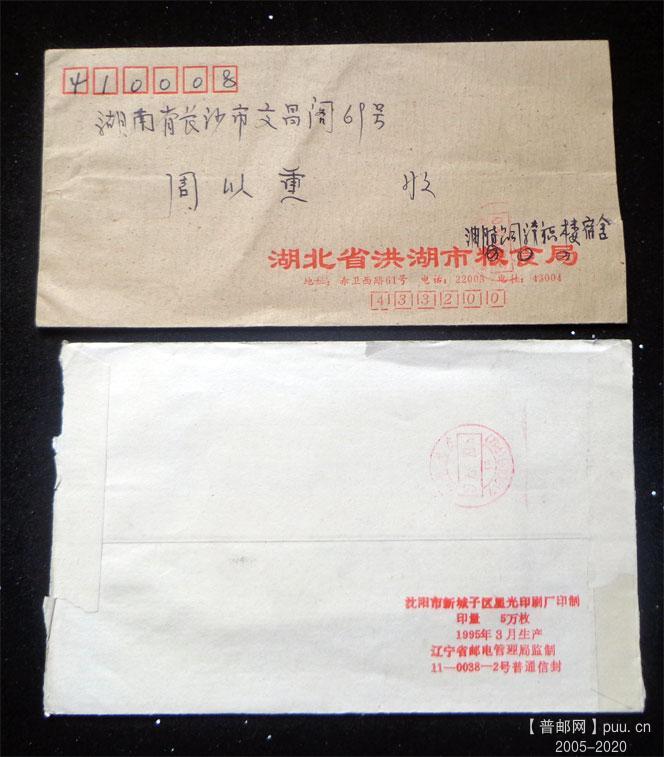 410008
湖南省长沙市文昌阁69号
周以熏 收
楼宿舍
湖北省洪湖市粮食局
地址：赤卫西路61号 电话：22003 电挂：43004
433200
沈阳市新城子区星光印刷厂印制
印量 5万枚
1995年3月生产
辽宁省邮电管理局监制
11—0038—2号普通信封
【普邮网】puu.cn
2005-2020